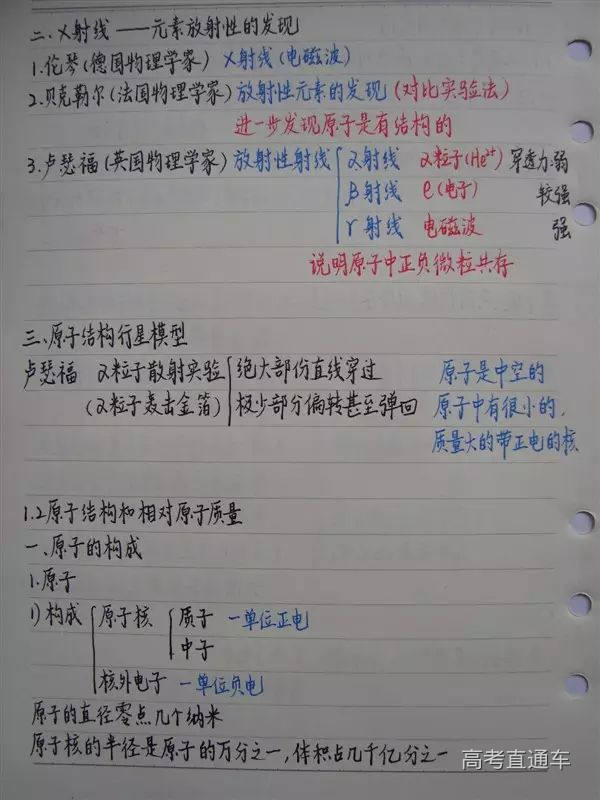 二、X射线——元素放射性的发现
1.伦琴(德国物理学家) X射线(电磁波)
2.贝克勒尔(法国物理学家)放射性元素的发现(对比实验法)
进一步发现原子是有结构的
3.卢瑟福(英国物理学家) 放射性射线 α射线 α粒子(He²⁺) 穿透力:弱
β射线 e(电子) 较强
γ射线 电磁波 强
说明原子中正负微粒共存
三、原子结构行星模型
卢瑟福 α粒子散射实验 绝大部份直线穿过 原子是中空的
(α粒子轰击金箔) 极少部分偏转甚至弹回 原子中有很小的,
质量大的带正电的核
1.2原子结构和相对原子质量
一、原子的构成
1.原子
1)构成 原子核 质子 一单位正电
中子
核外电子 一单位负电
原子的直径零点几个纳米
原子核的半径是原子的万分之一,体积占几千亿分之一
高考直通车